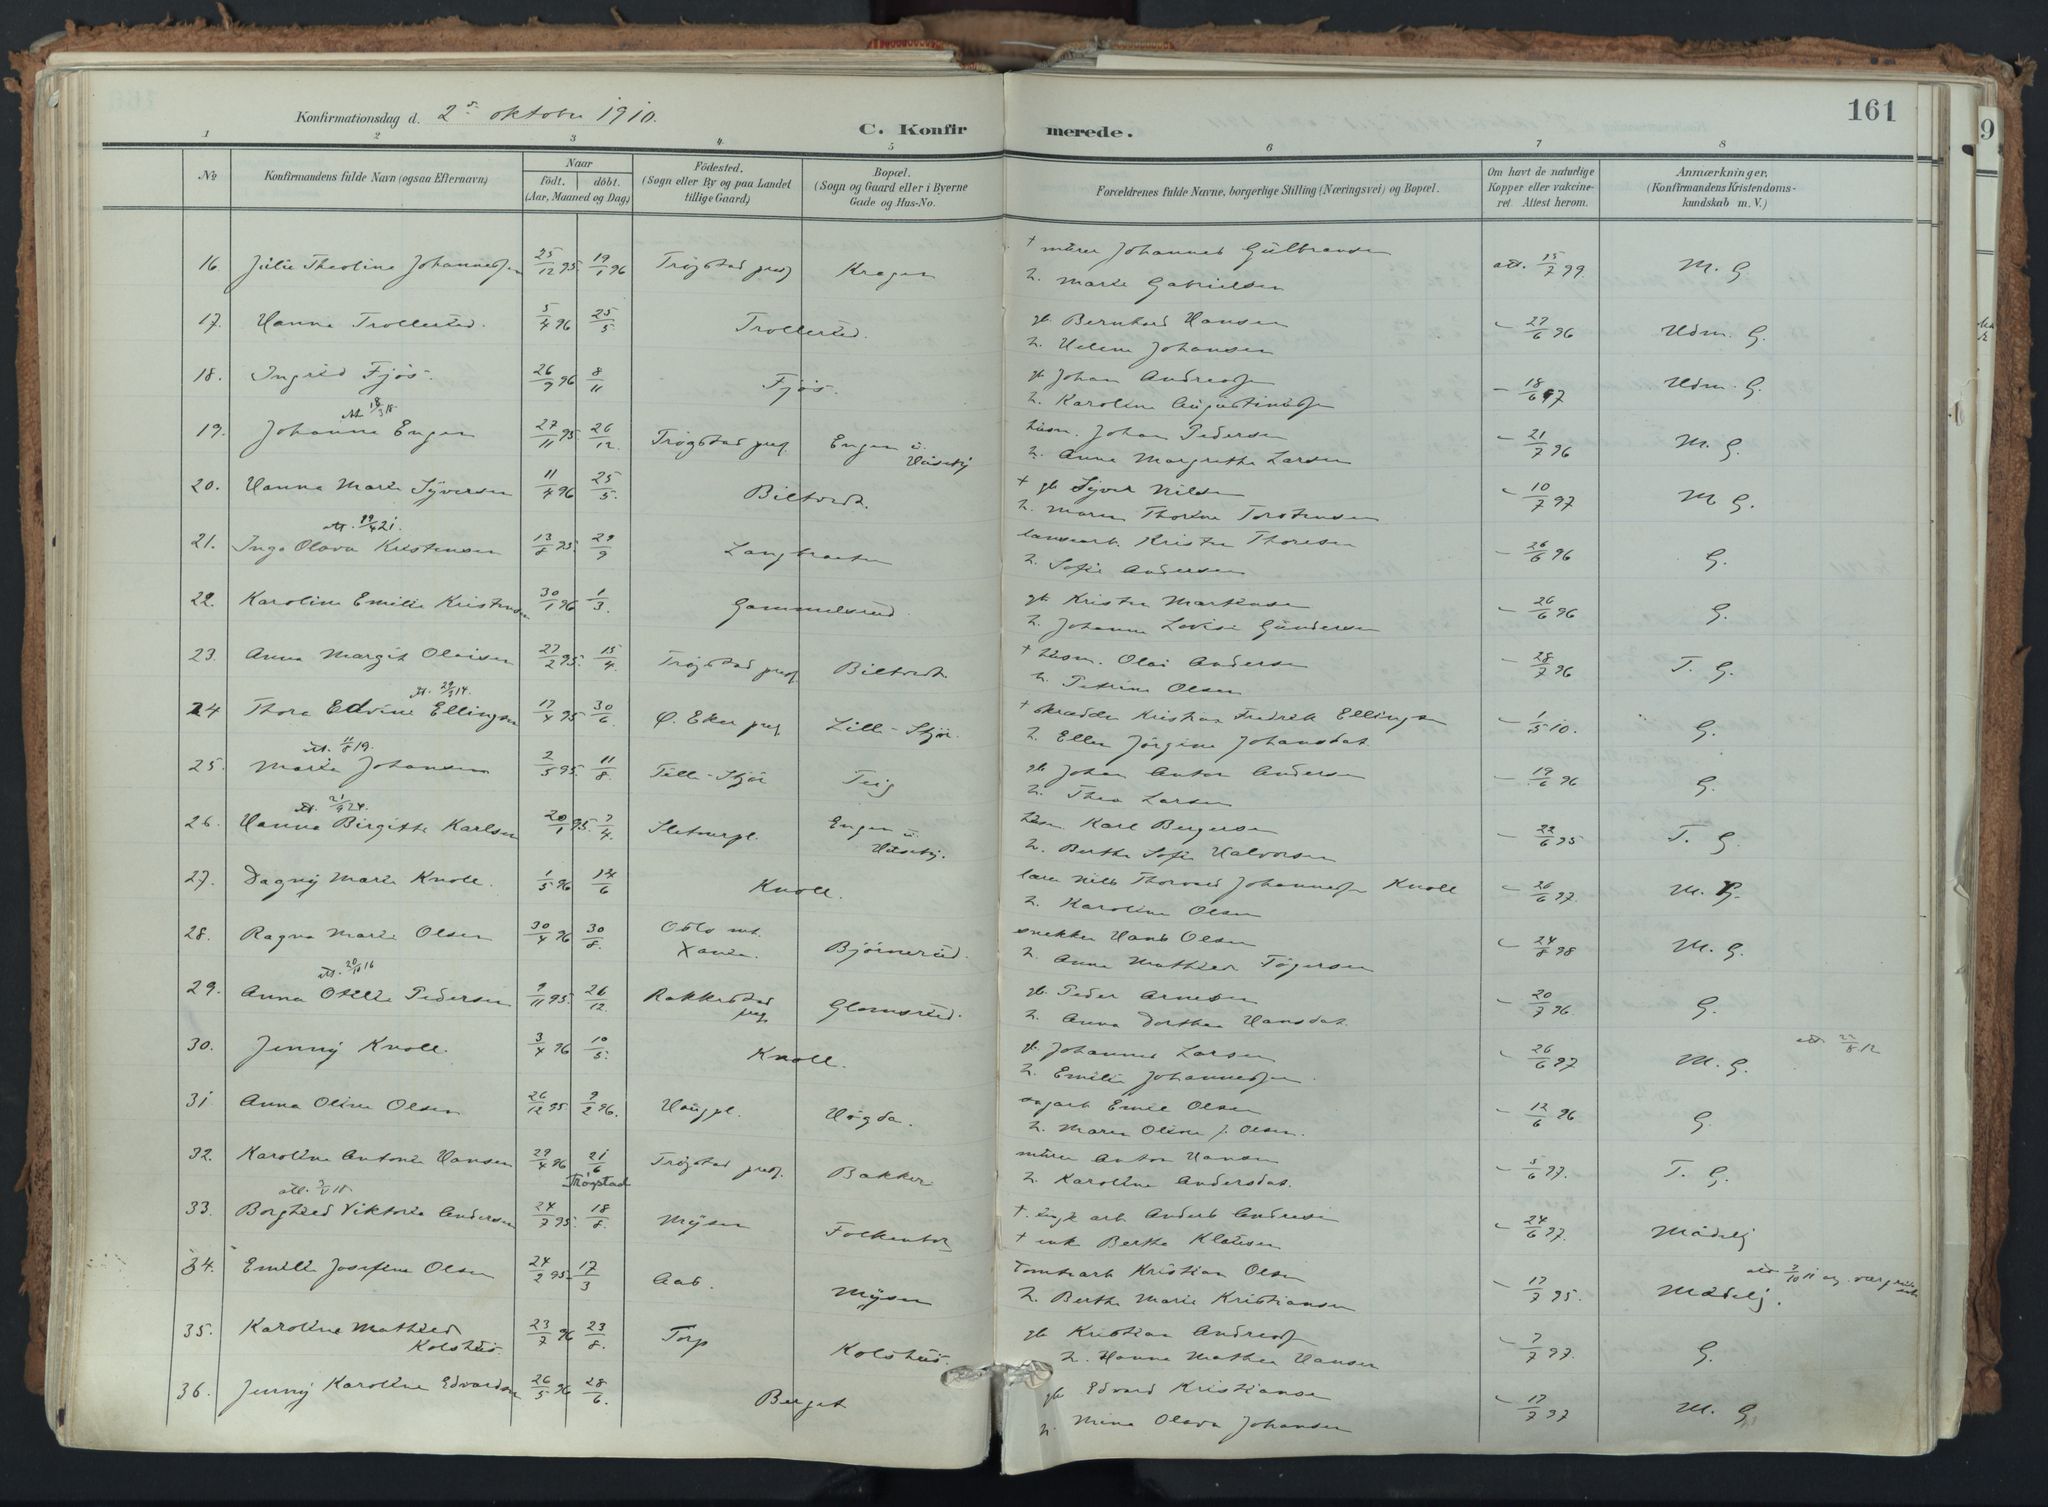 161
Konfirmationsdag d. 2 oktober 1910.
C. Konfirmerede.
1 2 3 4 5 6 7 8
No
Konfirmandens fulde Navn (ogsaa Efternavn)
Naar
födt. döbt.
(Aar, Maaned og Dag)
Födested.
(Sogn eller By og paa Landet
tillige Gaard)
Bopæl.
(Sogn og Gaard eller i Byerne
Gade og Hus-No.
Forældrenes fulde Navne, borgerlige Stilling (Næringsvei) og Bopæl.
Om havt de naturlige
Kopper eller vakcine-
ret. Attest herom.
Anmærkninger.
(Konfirmandens Kristendoms-
kundskab m. V.)
16 Julie Theoline Johannesen 25/12 95 19/1 96 Trøgstad præg Kragen † murer Johannes Gulbransen att. 15/7 99. M. G
h. Marie Gabrielsen
17. Hanna Trollerud. 5/4 96 25/5 Trollerud. gb. Bernhard Hansen – 27/6 96 Udm. G.
h. Helene Johansen
18. Ingrid Fjøs. 26/9 96 8/11 Fjøs. gb. Johan Andreasen – 18/6 97 Udm. G.
h. Karoline
19. Johanna Engen 27/11 95 26/12. Trøgstad præg. Engen u. husm. Johan Pedersen – 21/7 96 M. G.
h. Anna Margrethe Larsen
20. Hanna Marie Syversen 11/4 96 25/5. Biltvedt. † gb Syver Nilsen – 10/7 97 M G.
h. Maren Thorine Torstensen
att. 19/4 21.
21. Inga Olava Kristensen 13/8 95. 29/9 Langbraaten Krister Thoresen – 26/6 96 G.
h. Sofie Andersen
22. Karoline Emilie Kristensen 30/1 96 1/3. Gammelsrud. gb. Krister Martinsen – 26/6 96 G.
h. Johanne Lovise Gundersen
23. Anna Margit Olaisen 27/2 95. 15/4. Trøgstad præg. Biltvedt. † husm. Olai Andersen – 28/7 96 T. G.
h. Petrine Olsen
24 Thora Edvine Ellingsen 17/4 95 30/6. Ø. Eker præg Lille-Skjør. † skrædder Kristian Fredrik Ellingsen – 1/5 10. G.
h. Ellen Jørgine Johansdat.
att. 11/8 19.
25. Marie Johansen 2/5 95. 11/8 Teig gb Johan Anton Andersen – 19/6 96 G.
h. Thea Larsen
26. Hanna Birgitte Karlsen 20/1 95. 7/4. Engen u. husm. Karl Bergersen – 22/6 95 T. G.
h. Berthe Sofie Halvorsen
27. Dagny Marie Knoll. 1/5 96 14/6 Knoll. Nils Thorvald Johannesen Knoll – 26/6 97 M. G.
h. Karoline Olsen
28. Ragna Marie Olsen 30/4 96 30/8. Oslo Bjørnerud. snekker Hans Olsen – 24/8 98 M. G.
h. Anna Mathilde Tøgersen
att. 20/10 16
29. Anna Otilie Pedersen 9/11 95. 26/12 Rakkestad præg Glomsrud. gb. Peder Arnesen – 20/7 96. G.
h. Anna Dorthea Hansdat.
30. Jenny Knoll. 3/4 96 10/5. Knoll. gb. Johannes Larsen – 26/6 97 M. G. att 22/8 12
h. Emilie Johannesen.
31 Anna Oline Olsen 26/12 95 9/2 96. Høgda. sagarb Emil Olsen – 12/6 96 G.
h. Maren Oline J. Olsen.
32. Karoline Antonie Hansen 29/4 96 21/6 Trøgstad Trøgstad præg. Bakker murer Anton Hansen – 5/6 97. T. G.
h. Karoline Andersdat.
33. Borghild Viktoria Andersen 24/7 95. 18/8. Mysen Anders – 24/6 97. Mådelj
Berthe Klausen
34. Emilie Josefine Olsen 24/2 95 17/3 Aas. Mysen Tomtearb Kristian Olsen – 17/7 95. Mådelj.
h. Berthe Marie Kristiansen
35. Karoline Mathild Kolshus. 23/7 96 23/8. Torp Kolshus. gb Kristian Andreasen – 7/7 97. G.
h. Hanna Mathea Hansen
36. Jenny Karoline Edvardsen 26/5 96 28/6. Berget gb Edvard Kristiansen – 17/7 97 M. G
h. Mina Olava Johansen